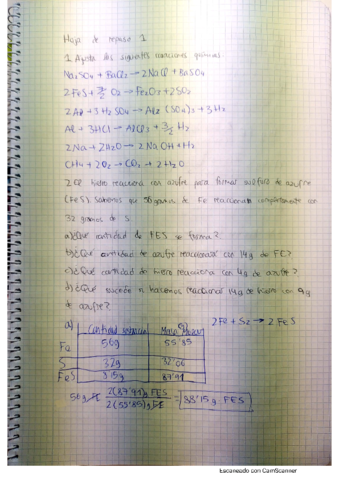 Hoja de repaso 1
1 Ajusta las siguientes reacciones químicas
Na₂SO₄ + BaCl₂ → 2NaCl + BaSO₄
2FeS + 7/2 O₂ → Fe₂O₃ + 2SO₂
2Al + 3H₂SO₄ → Al₂(SO₄)₃ + 3H₂
Al + 3HCl → AlCl₃ + 3/2 H₂
2Na + 2H₂O → 2NaOH + H₂
CH₄ + 2O₂ → CO₂ + 2H₂O
2 El hierro reacciona con azufre para formar sulfuro de azufre
(FeS) Sabemos que 56 gramos de Fe reaccionan completamente con
32 gramos de S
a) ¿Qué cantidad de FES se forma?
b) ¿Qué cantidad de azufre reaccionará con 14g de FE?
c) ¿Qué cantidad de hierro reacciona con 4g de azufre?
d) ¿Qué sucede si hacemos reaccionar 14g de hierro con 9g
de azufre?
a) Cantidad Masa Molar 2Fe + S₂ → 2 FeS
Fe 56g 55'85
S 32g 32'06
FeS 87'91
56g FE 2(87'91)g FES / 2(55'85)g FE = 88'15g FES
Escaneado con CamScanner